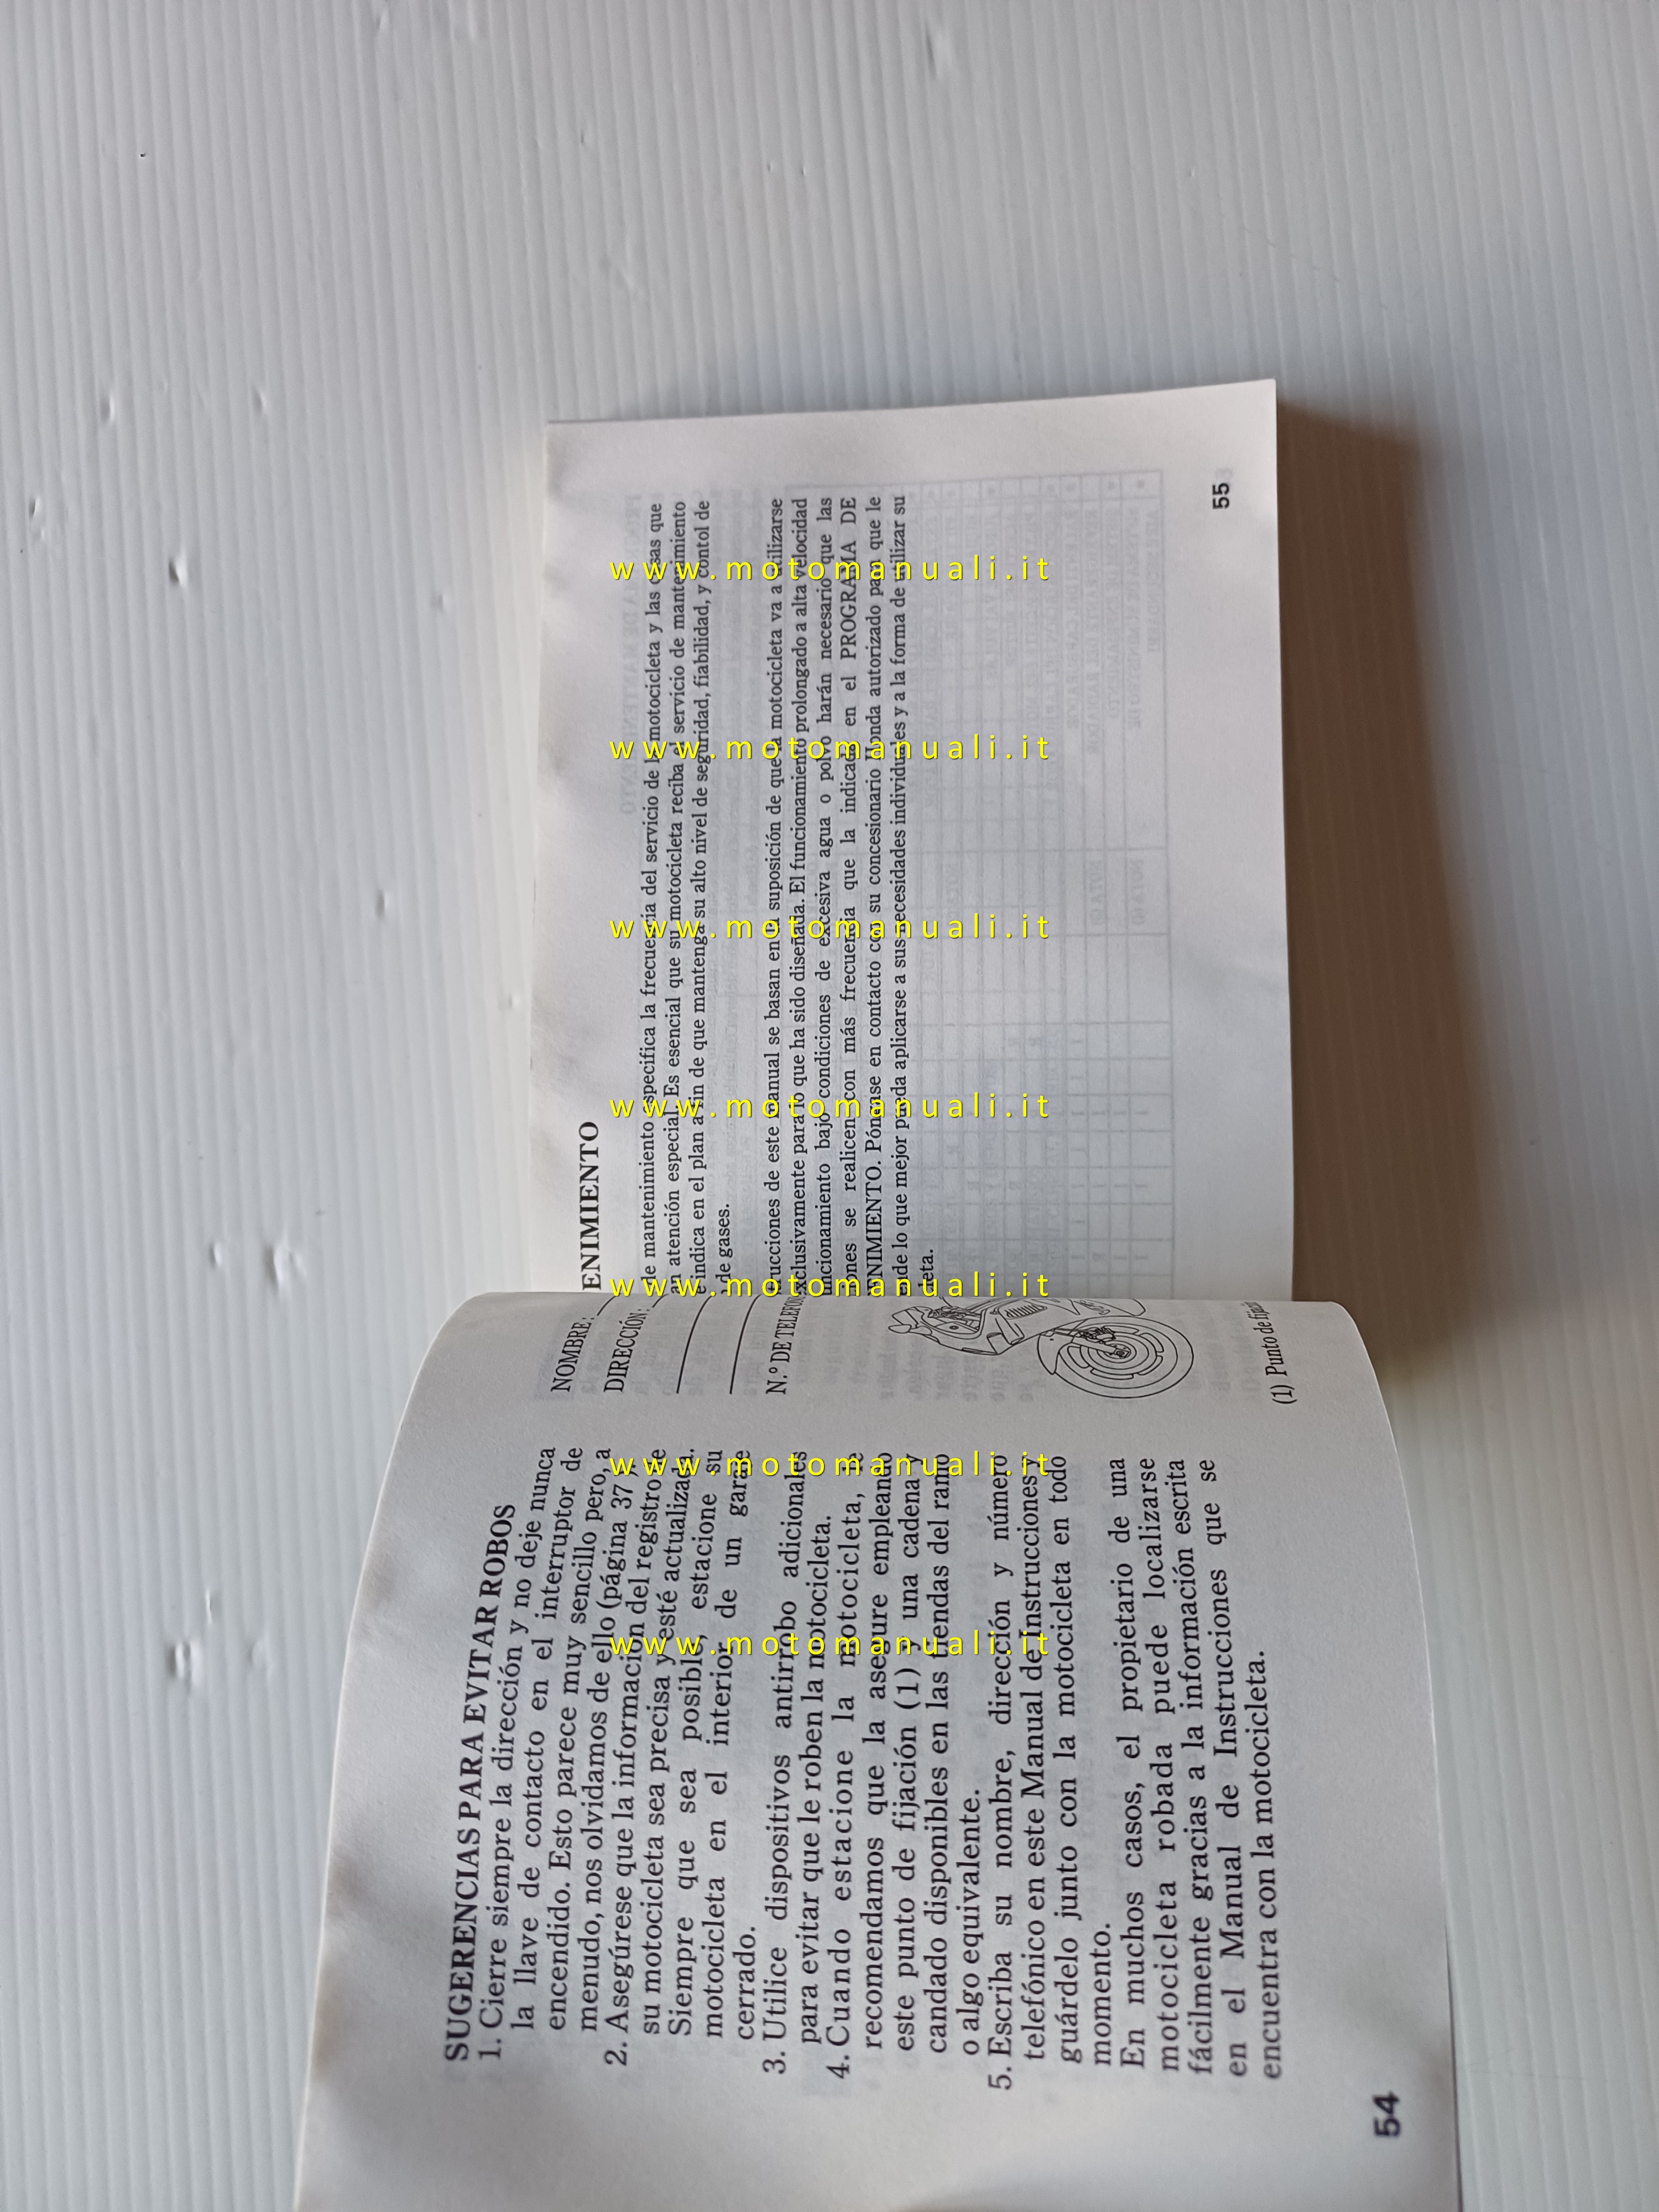 SUGERENCIAS PARA EVITAR ROBOS
1. Cierre siempre la dirección y no deje nunca
la llave de contacto en el interruptor de
encendido. Esto parece muy sencillo pero, a
menudo, nos olvidamos de ello (página 37).
2. Asegúrese que la información del registro de
su motocicleta sea precisa y esté actualizada.
Siempre que sea posible, estacione su
motocicleta en el interior de un garaje
cerrado.
3. Utilice dispositivos antirrobo adicionales
para evitar que le roben la motocicleta.
4. Cuando estacione la motocicleta, le
recomendamos que la asegure empleando
este punto de fijación (1) y una cadena y
candado disponibles en las tiendas del ramo
o algo equivalente.
5. Escriba su nombre, dirección y número
telefónico en este Manual de Instrucciones y
guárdelo junto con la motocicleta en todo
momento.
En muchos casos, el propietario de una
motocicleta robada puede localizarse
fácilmente gracias a la información escrita
en el Manual de Instrucciones que se
encuentra con la motocicleta.
54
NOMBRE:
DIRECCIÓN:
N.º DE TELEFON
(1) Punto de fijació
ENIMIENTO
de mantenimiento especifica la frecuencia del servicio de la motocicleta y las cosas que
an atención especial. Es esencial que su motocicleta reciba el servicio de mantenimiento
e indica en el plan a fin de que mantenga su alto nivel de seguridad, fiabilidad, y contol de
de gases.
rucciones de este manual se basan en la suposición de que la motocicleta va a utilizarse
xclusivamente para lo que ha sido diseñada. El funcionamiento prolongado a alta velocidad
uncionamiento bajo condiciones de excesiva agua o polvo harán necesario que las
iones se realicen con más frecuencia que la indicada en el PROGRAMA DE
ENIMIENTO. Póngase en contacto con su concesionario Honda autorizado para que le
ende lo que mejor pueda aplicarse a sus necesidades individuales y a la forma de utilizar su
leta.
55
www.motomanuali.it
www.motomanuali.it
www.motomanuali.it
www.motomanuali.it
www.motomanuali.it
www.motomanuali.it
www.motomanuali.it